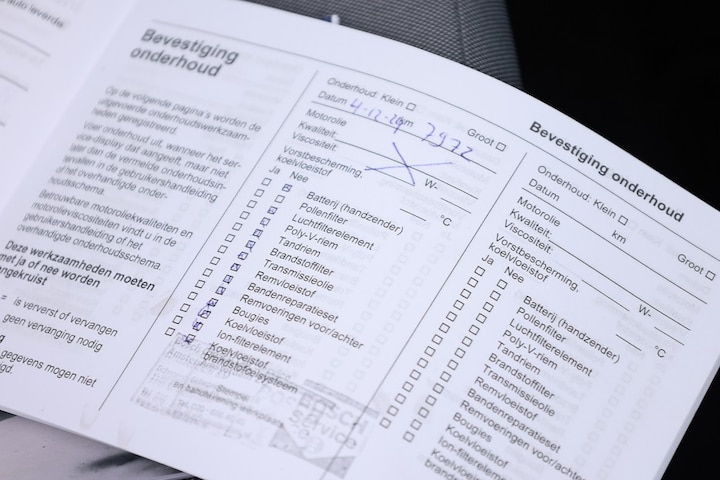 Bevestiging
onderhoud
Op de volgende pagina's worden de
uitgevoerde onderhoudswerkzaam-
heden geregistreerd.
Voer onderhoud uit, wanneer het ser-
vice-display dat aangeeft, maar niet
later dan de vermelde onderhoudsin-
tervallen in de gebruikershandleiding
of het overhandigde onder-
houdsschema.
Betrouwbare motoroliekwaliteiten en
motorolieviscositeiten vindt u in de
gebruikershandleiding of het
overhandigde onderhoudsschema.
Deze werkzaamheden moeten
met ja of nee worden
angekruist
= is ververst of vervangen
geen vervanging nodig
gegevens mogen niet
Onderhoud: Klein Groot
Datum 4-12-24 km 7972
Motorolie
Kwaliteit:
Viscositeit: W-
Vorstbescherming,
koelvloeistof °C
Ja Nee
Batterij (handzender)
Pollenfilter
Luchtfilterelement
Poly-V-riem
Tandriem
Brandstoffilter
Transmissieolie
Remvloeistof
Bandenreparatieset
Remvoeringen voor/achter
Bougies
Koelvloeistof
Ion-filterelement
Koelvloeistof
brandstofcelsysteem
Stempel
en handtekening werkplaats
Bevestiging onderhoud
Onderhoud: Klein Groot
Datum km
Motorolie
Kwaliteit:
Viscositeit: W-
Vorstbescherming,
koelvloeistof °C
Ja Nee
Batterij (handzender)
Pollenfilter
Luchtfilterelement
Poly-V-riem
Tandriem
Brandstoffilter
Transmissieolie
Remvloeistof
Bandenreparatieset
Remvoeringen voor/achter
Bougies
Koelvloeistof
Ion-filterelement
Koelvloeistof